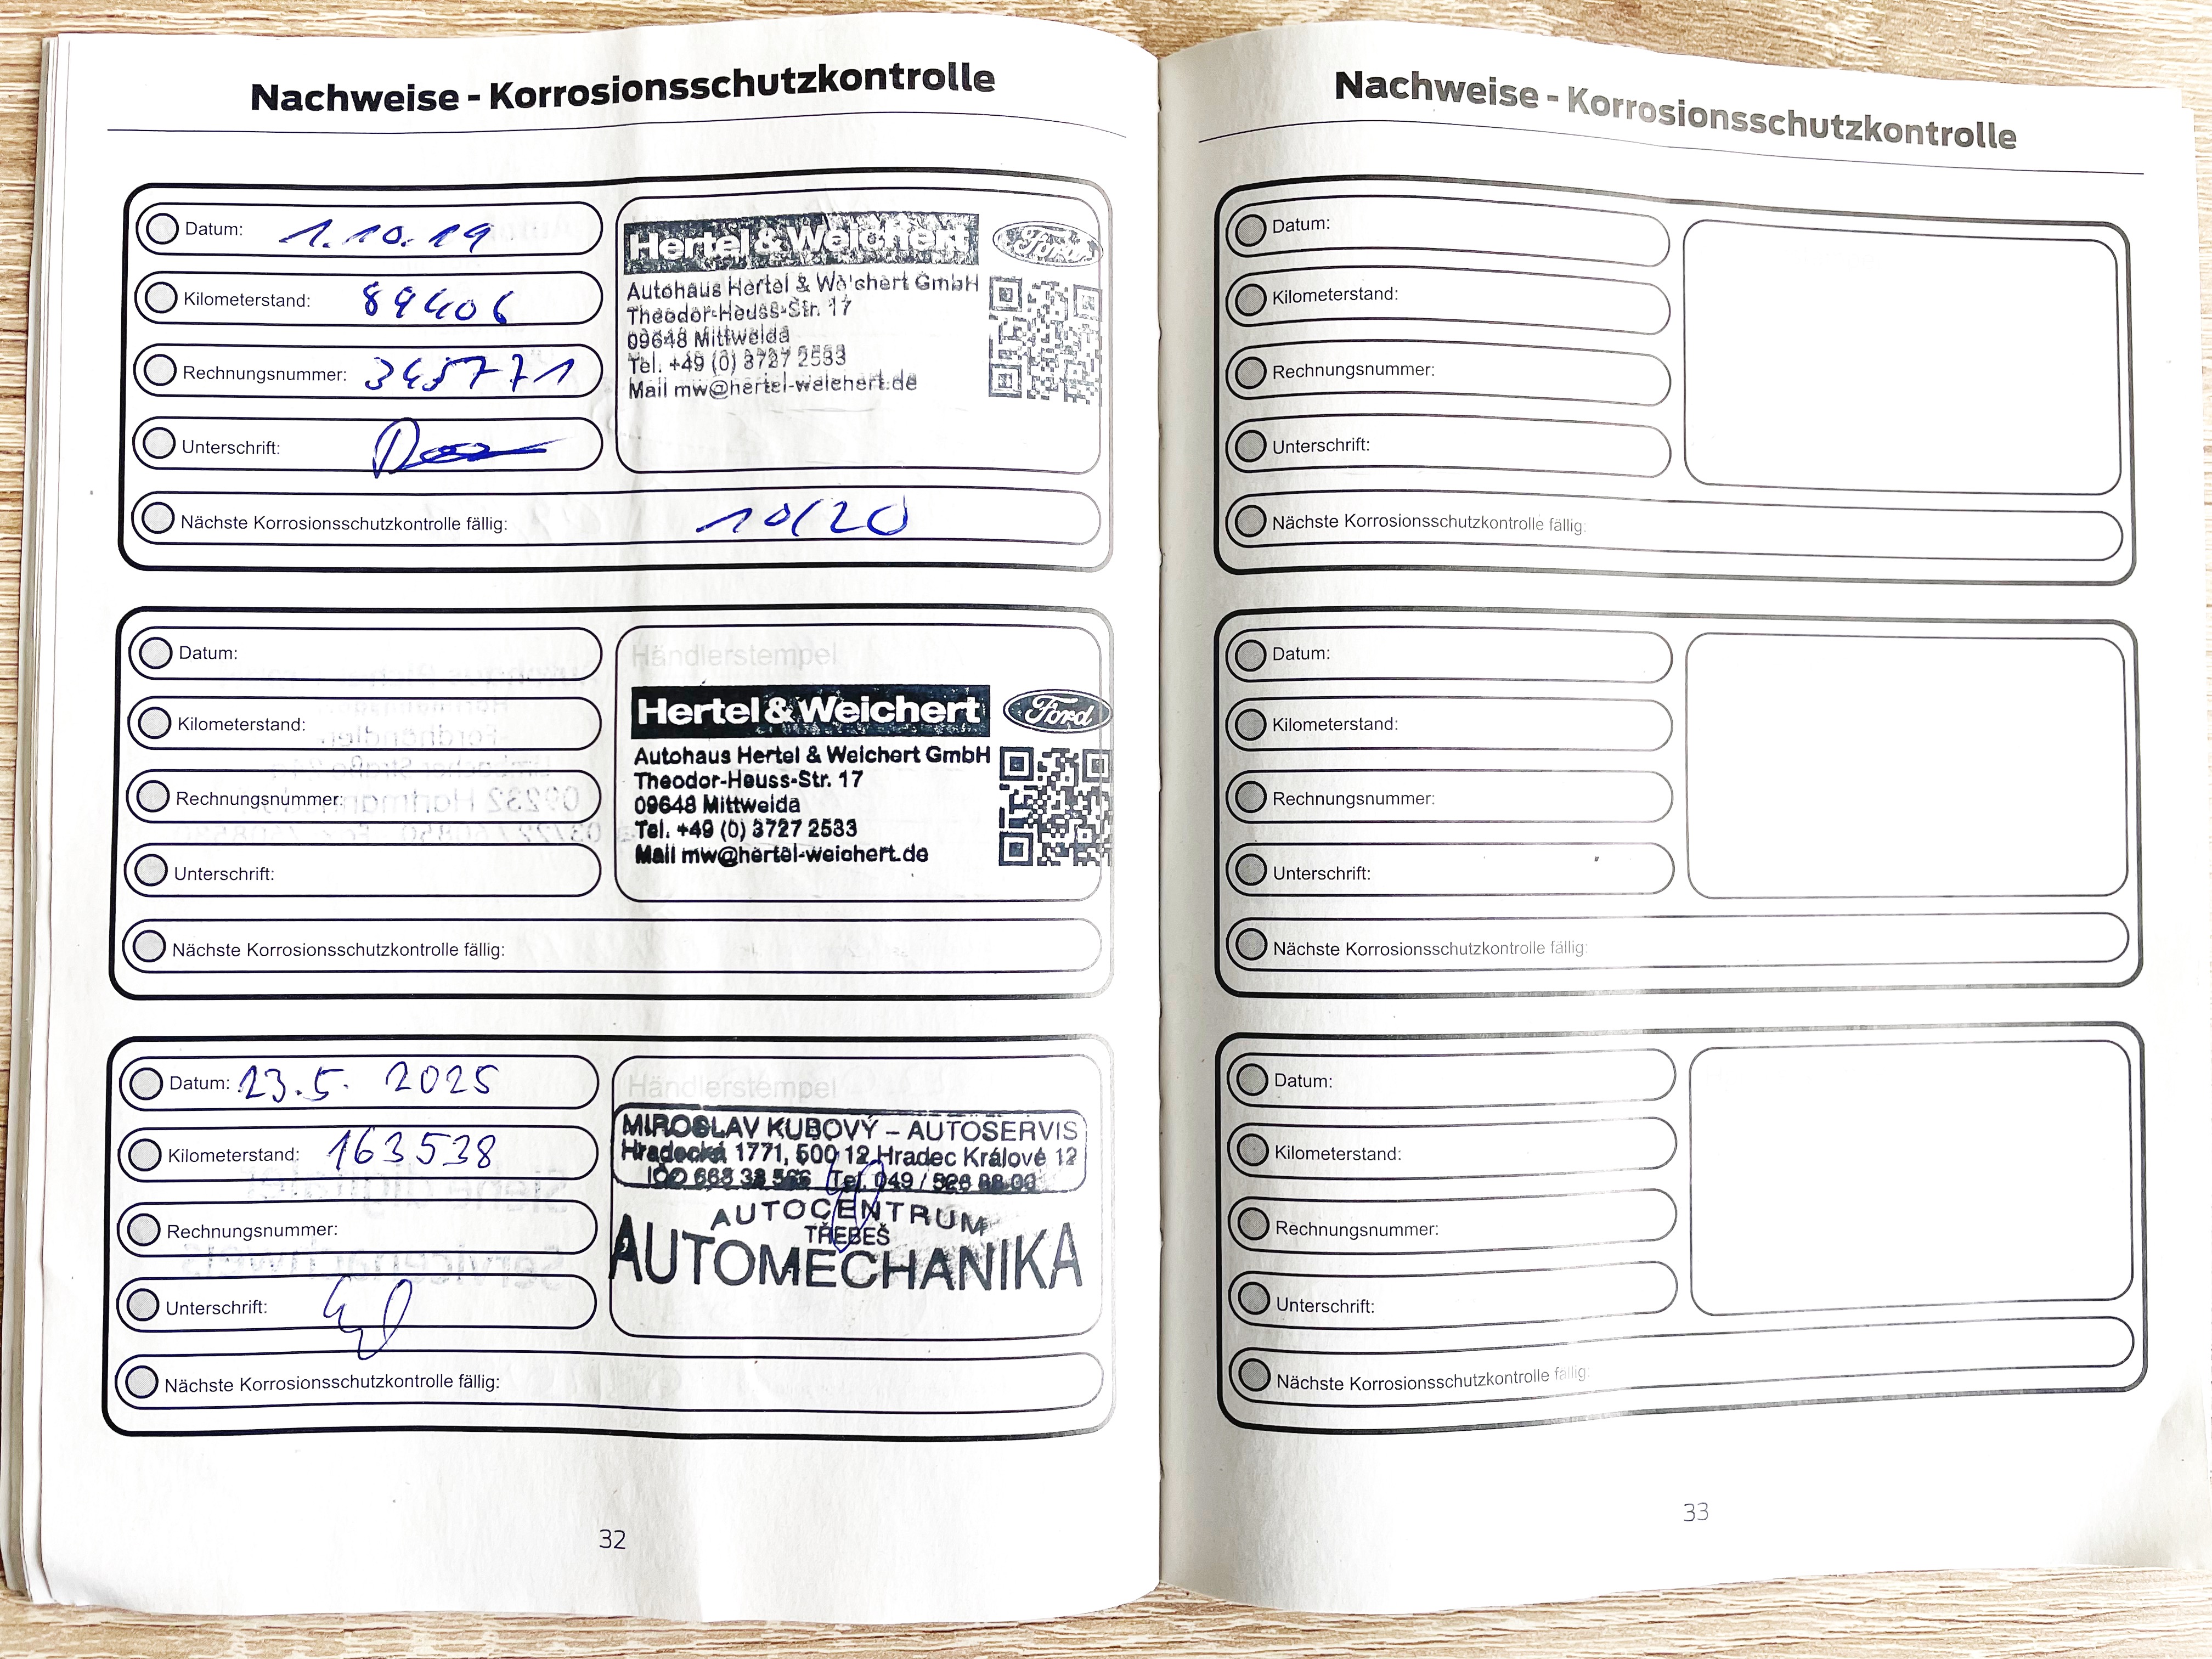 Nachweise - Korrosionsschutzkontrolle
Datum: 1.10.19
Kilometerstand: 89406
Rechnungsnummer: 345771
Unterschrift:
Nächste Korrosionsschutzkontrolle fällig: 10/20
Hertel & Weichert Ford
Autohaus Hertel & Weichert GmbH
Theodor-Heuss-Str. 17
09648 Mittweida
Tel. +49 (0) 3727 2533
Mail mw@hertel-weichert.de
Datum:
Kilometerstand:
Rechnungsnummer:
Unterschrift:
Nächste Korrosionsschutzkontrolle fällig:
Händlerstempel
Hertel & Weichert Ford
Autohaus Hertel & Weichert GmbH
Theodor-Heuss-Str. 17
09648 Mittweida
Tel. +49 (0) 3727 2533
Mail mw@hertel-weichert.de
Datum: 23.5. 2025
Kilometerstand: 163538
Rechnungsnummer:
Unterschrift:
Nächste Korrosionsschutzkontrolle fällig:
Händlerstempel
MIROSLAV KUBOVÝ – AUTOSERVIS
Hradecká 1771, 500 12 Hradec Králové 12
IČO 668 38 Tel. 049 /
AUTOCENTRUM
TŘEBEŠ
AUTOMECHANIKA
32
Nachweise - Korrosionsschutzkontrolle
Datum:
Kilometerstand:
Rechnungsnummer:
Unterschrift:
Nächste Korrosionsschutzkontrolle fällig:
Datum:
Kilometerstand:
Rechnungsnummer:
Unterschrift:
Nächste Korrosionsschutzkontrolle fällig:
Datum:
Kilometerstand:
Rechnungsnummer:
Unterschrift:
Nächste Korrosionsschutzkontrolle fällig:
33